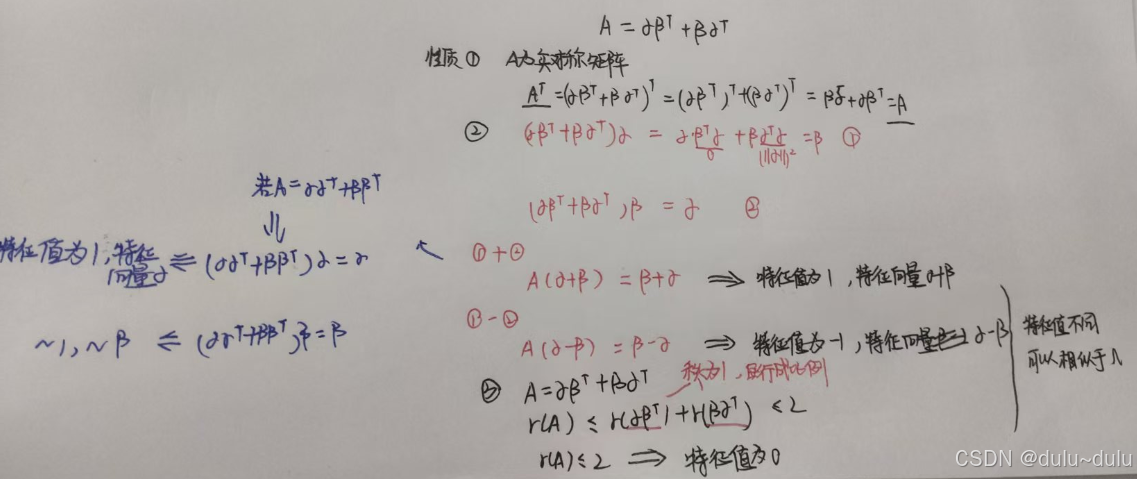 A = αβᵀ + βαᵀ
性质① A为实对称矩阵
Aᵀ = (αβᵀ + βαᵀ)ᵀ = (αβᵀ)ᵀ + (βαᵀ)ᵀ = βαᵀ + αβᵀ = A
② (αβᵀ + βαᵀ)α = αβᵀα + βαᵀα = β ①
0 (||α||)²
若A = ααᵀ + ββᵀ
⇓
(αβᵀ + βαᵀ)β = α ②
特征值为1,特征向量α ⇐ (ααᵀ + ββᵀ)α = α
①+②
A(α+β) = β+α ⇒ 特征值为1,特征向量α+β
~1,~β ⇐ (ααᵀ + ββᵀ)β = β
①-②
A(α-β) = β-α ⇒ 特征值为-1,特征向量α-β
特征值不同
可以相似于Λ
③ A = αβᵀ + βαᵀ 秩为1,且行成比例
r(A) ≤ r(αβᵀ) + r(βαᵀ) ≤ 2
r(A) ≤ 2 ⇒ 特征值为0
CSDN @dulu~dulu